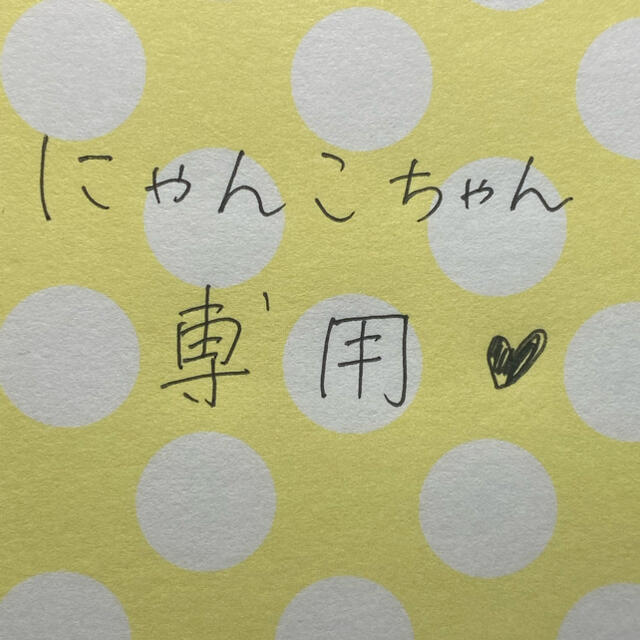 にゃんこちゃん
専用♥